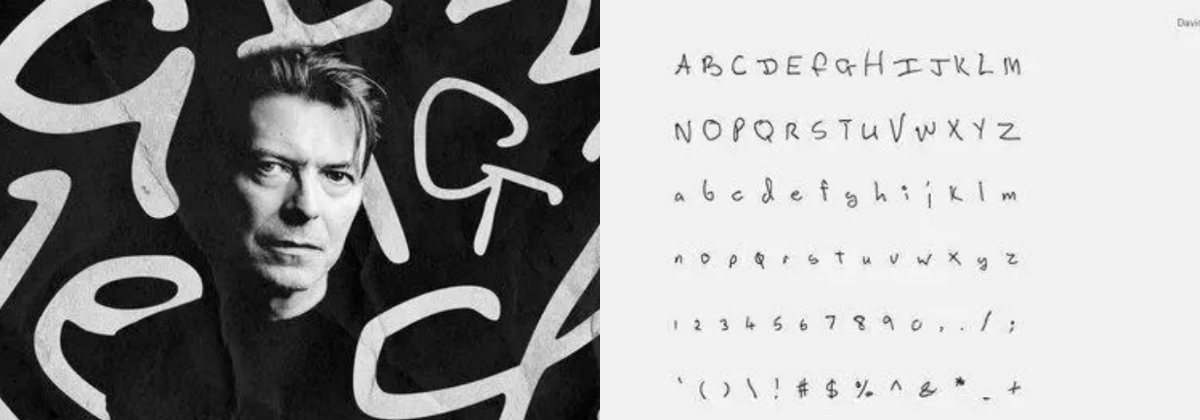 Davi
A B C D E F G H I J K L M
N O P Q R S T U V W X Y Z
a b c d e f g h i j k l m
n o p q r s t u v w x y z
1 2 3 4 5 6 7 8 9 0 , . / ;
` ( ) \ ! # $ % ^ & * - +